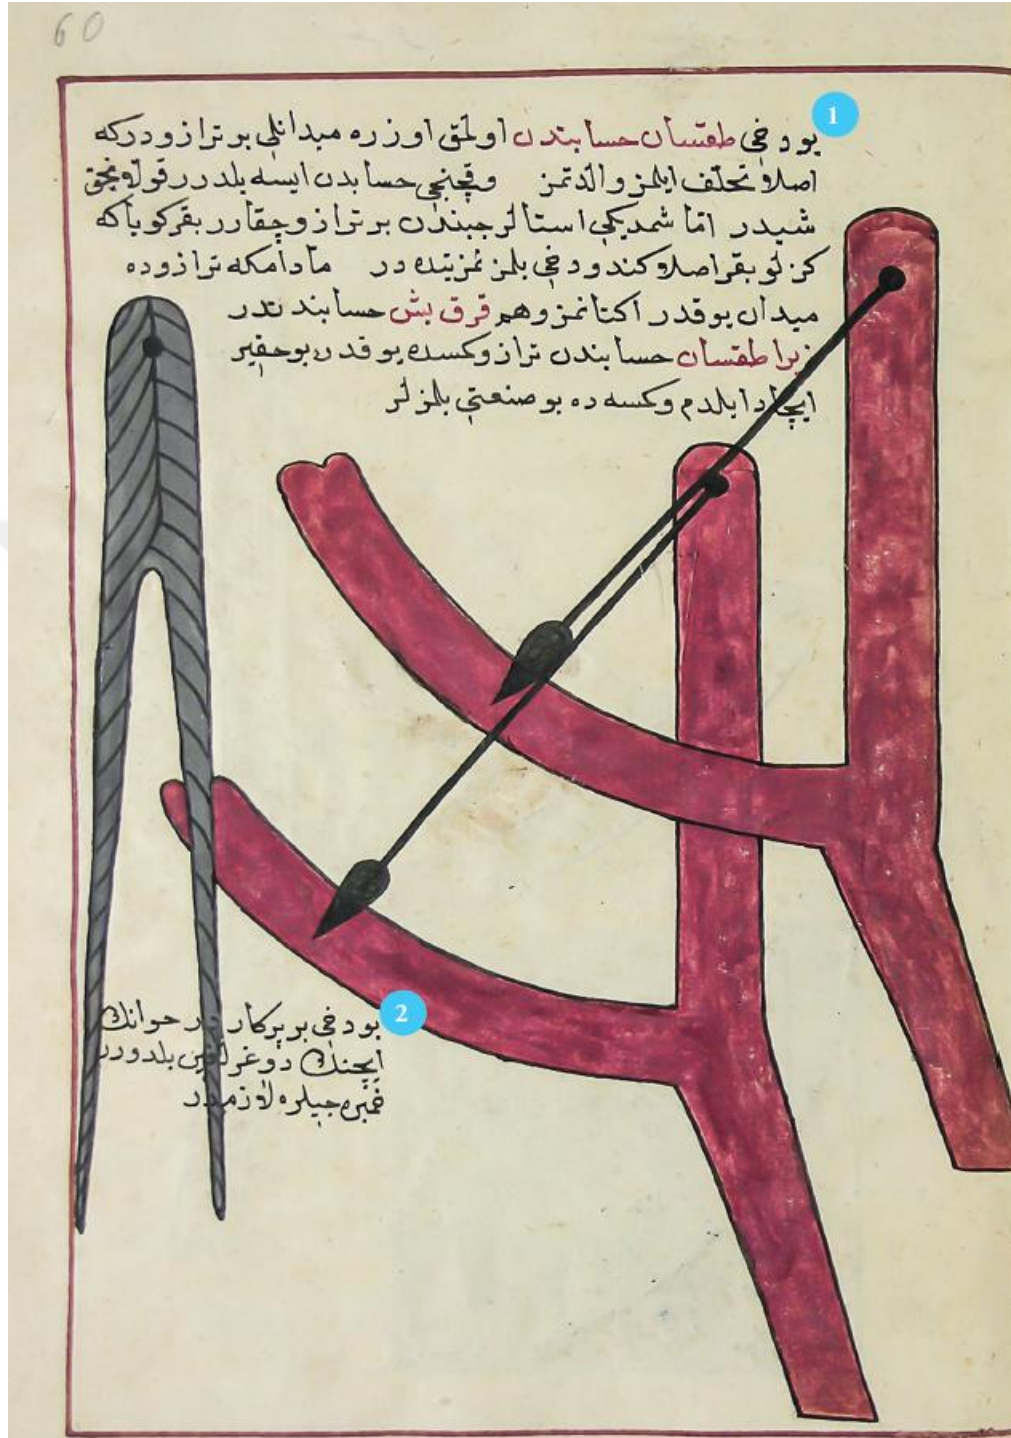 60
1
بو دخی طقسان حسابندن اولمق اوزره میدانلی بر ترازودرکه
اصلا تخلف ایلمز والدتمز وقچنجی حسابدن ایسه بلدرر قولاونجق
شیدر اما شمدیکی استالر جبندن بر ترازو چقارر بقر کویاکه
کزلو بقر اصلا کندو دخی بلمز نمزیتده در مادامکه ترازوده
میدان یوقدر اکتانمز وهم قرق بش حسابندندر
زیرا طقسان حسابندن ترازو کسده یوقدر بو حقیر
ایجاد ایلدم وکسه ده بو صنعتی بلمزلر
2
بو دخی بر پرکار در حوانك
ایچنك دوغرلغین بلدورر
خمبره جیلره لازمدر